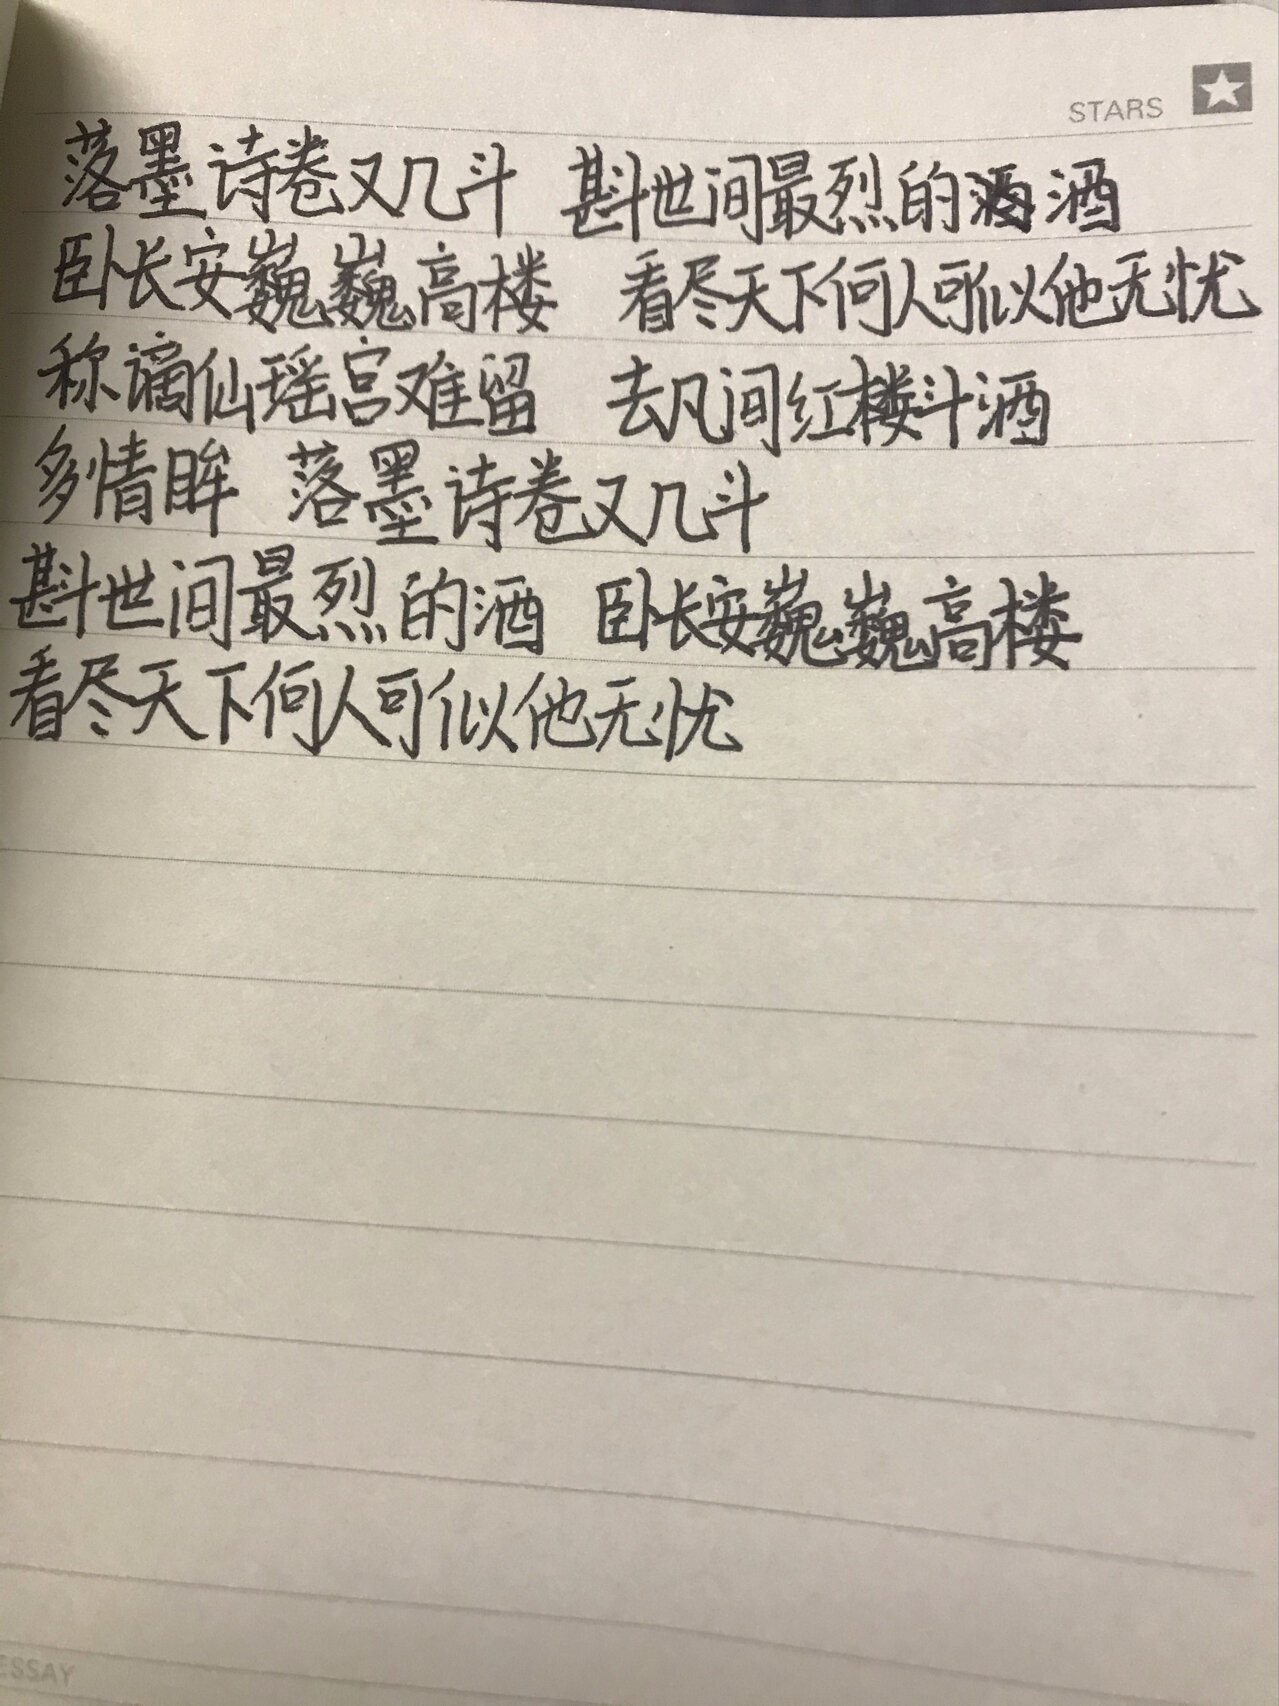 STARS
落墨诗卷又几斗 斟世间最烈的酒
卧长安巍巍高楼 看尽天下何人可似他无忧
称谪仙瑶宫难留 去凡间红楼斗酒
多情眸 落墨诗卷又几斗
斟世间最烈的酒 卧长安巍巍高楼
看尽天下何人可似他无忧
ESSAY